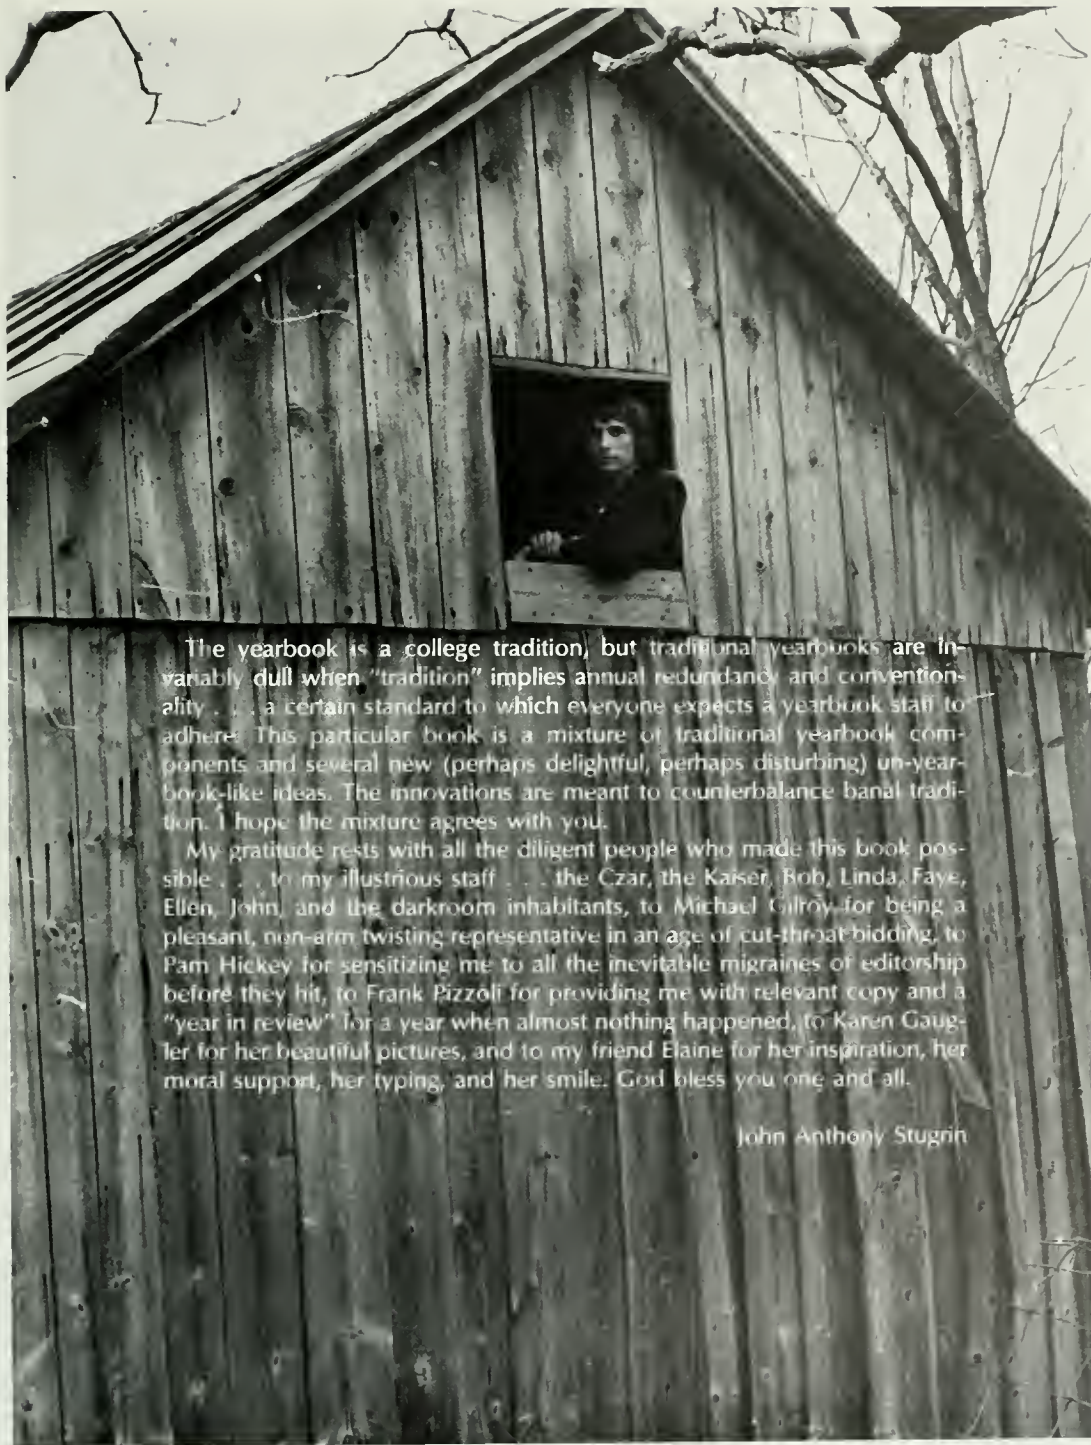 The yearbook is a college tradition, but traditional yearbooks are in-
variably dull when "tradition" implies annual redundancy and convention-
ality . . . a certain standard to which everyone expects a yearbook staff to
adhere. This particular book is a mixture of traditional yearbook com-
ponents and several new (perhaps delightful, perhaps disturbing) un-year-
book-like ideas. The innovations are meant to counterbalance banal tradi-
tion. I hope the mixture agrees with you.
My gratitude rests with all the diligent people who made this book pos-
sible . . . to my illustrious staff . . . the Czar, the Kaiser, Bob, Linda, Faye,
Ellen, John, and the darkroom inhabitants, to Michael Gilroy for being a
pleasant, non-arm twisting representative in an age of cut-throat bidding, to
Pam Hickey for sensitizing me to all the inevitable migraines of editorship
before they hit, to Frank Pizzoli for providing me with relevant copy and a
"year in review" for a year when almost nothing happened, to Karen Gaug-
ler for her beautiful pictures, and to my friend Elaine for her inspiration, her
moral support, her typing, and her smile. God bless you one and all.
John Anthony Stugrin